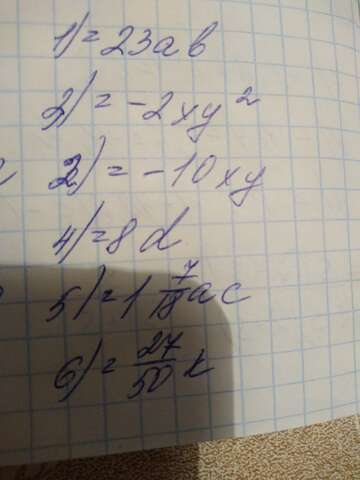 1) = 23ab
2) = -2xy²
3) = -10xy
4) = 8d
5) = 1 7/18 ac
6) = 27/50 k